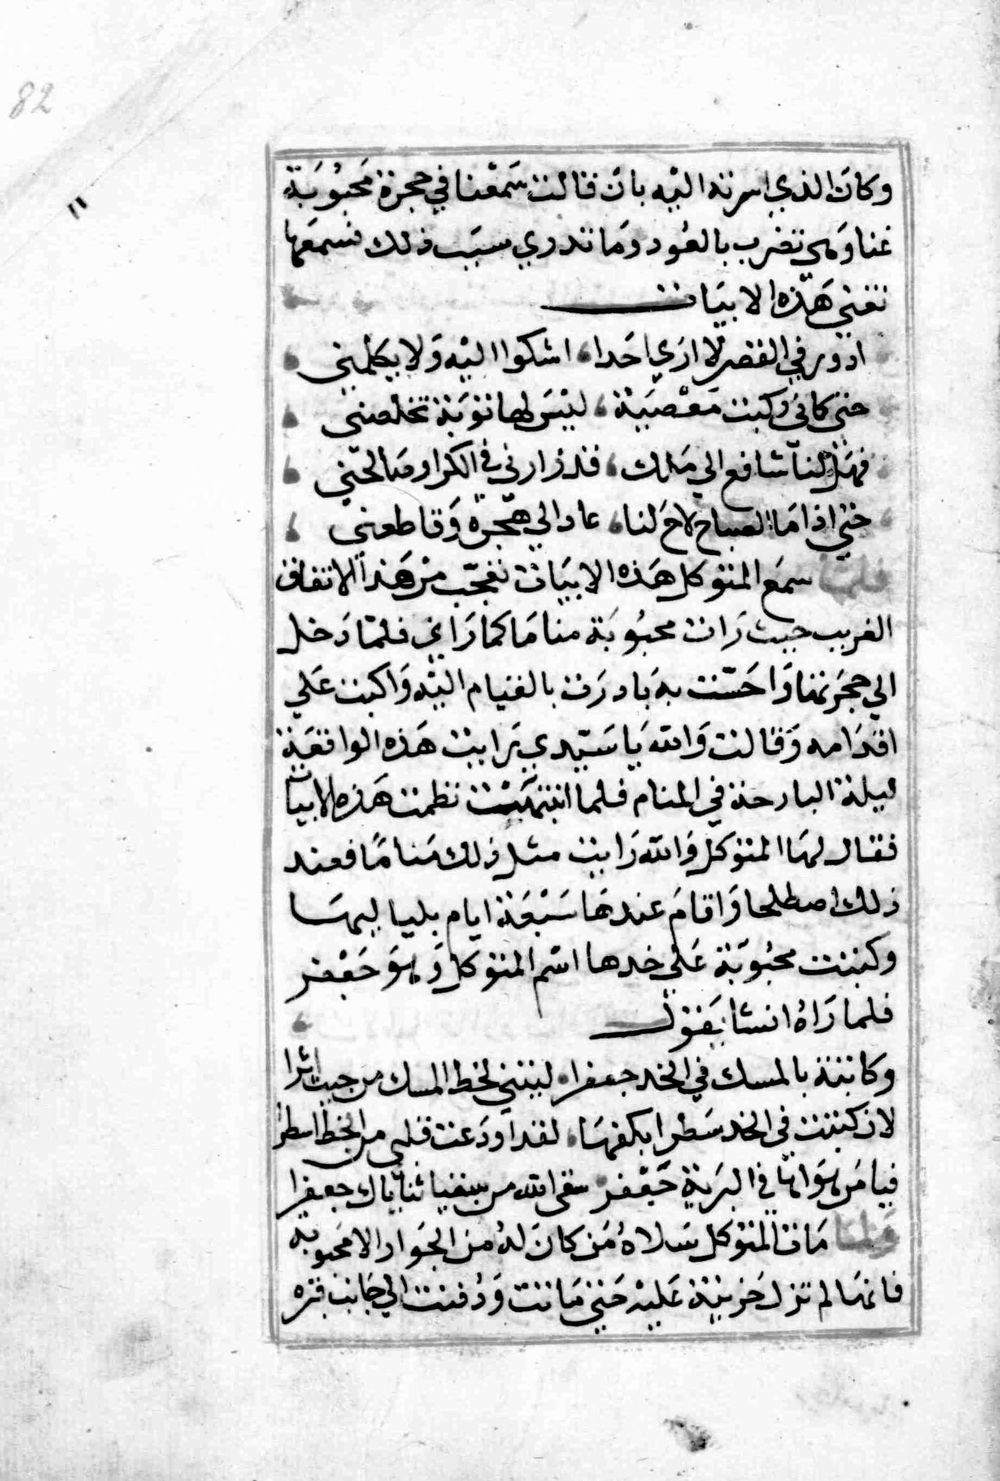 82
١١
وكان الذي اسرته اليه بان قالت سمعنا في حجرة محبوبة
غنا وهي تضرب بالعود وما ندري سبب ذلك فسمعها
تغني هذه الابيات
ادور في القصر لا اري احدا، اشكوا اليه ولا يكلمني
حتي كاني ركبت معصية، ليس لها توبة تخلصني
فهل لنا شافع الي ملك، قد زارني في الكرا وصالحني
حتي اذا ما الصباح لاح لنا، عاد الي هجره وقاطعني
فلما سمع المتوكل هذه الابيات تعجب من هذا الاتفاق
الغريب حيث رات محبوبة مناما كما راي فلما دخل
الي حجرتها واحست به بادرت بالقيام اليه واكبت علي
اقدامه وقالت والله يا سيدي رايت هذه الواقعة
ليلة البارحة في المنام فلما انتبهت نظمت هذه الابيات
فقال لها المتوكل والله رايت مثل ذلك مناما فعند
ذلك اصطلحا واقام عندها سبعة ايام بلياليها
وكتبت محبوبة علي خدها اسم المتوكل وهو جعفر
فلما راه انشا يقول
وكاتبة بالمسك في الخد جعفرا، لبنني لخط المسك من حيث اثرا
لان كتبت في الخد سطرا بكفها، لقد اودعت قلبي من الخط اسطرا
فيا من هواها في البرية جعفر سقي الله من سقيا ثناياك جعفرا
ولما مات المتوكل سلاه من كان له من الجوار الا محبوبة
فانها لم تزل حزينة عليه حتي ماتت ودفنت الي جانب قبره